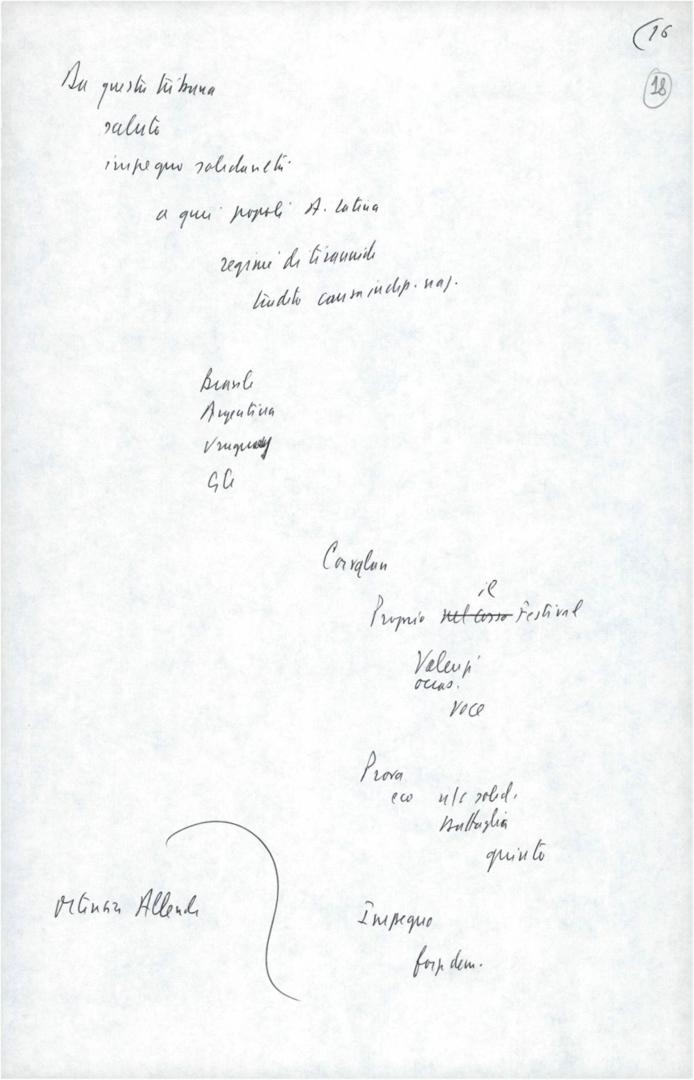 (16
18
Da questa tribuna
saluto
impegno solidarietà
a quei popoli A. Latina
regimi di tirannide
tradito causa indip. naz.
Brasile
Argentina
Uruguay
Cile
Corvalan
il
Proprio nel corso Festival
Valenzi
occas.
voce
Prova
eco n/s solid.
battaglia
quinto
Ortensia Allende
Impegno
forze dem.